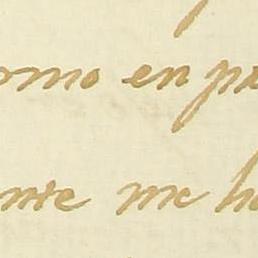 omo en pr
nte me ha